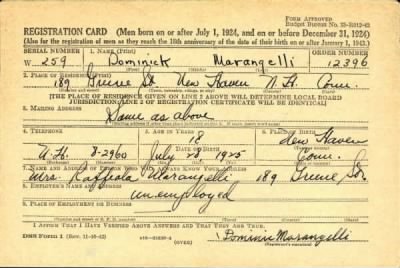 FORM APPROVED
REGISTRATION CARD (Men born on or after July 1, 1924, and on or before December 31, 1924)
(Also for the registration of men as they reach the 18th anniversary of the date of their birth on or after January 1, 1943.)
SERIAL NUMBER
1. NAME
ORDER NUMBER
W 259
Dominick Marangelli
12396
2. PLACE OF RESIDENCE
189 Greene St. New Haven N.H. Conn.
[THE PLACE OF RESIDENCE GIVEN ON LINE 2 ABOVE WILL DETERMINE LOCAL BOARD
JURISDICTION; LINE 2 OF REGISTRATION CERTIFICATE WILL BE IDENTICAL]
3. MAILING ADDRESS
Same as above
4. TELEPHONE
5. AGE IN YEARS
6. PLACE OF BIRTH
18
New Haven
N.H. 8-2960
July 28 1925
Conn.
7. NAME AND ADDRESS OF PERSON WHO WILL ALWAYS KNOW YOUR ADDRESS
Mrs. Marangelli 189 Greene St.
8. EMPLOYER'S NAME AND ADDRESS
unemployed
9. PLACE OF EMPLOYMENT OR BUSINESS
I AFFIRM THAT I HAVE VERIFIED ABOVE ANSWERS AND THAT THEY ARE TRUE.
DSS Form 1
(OVER)
Dominic Marangelli